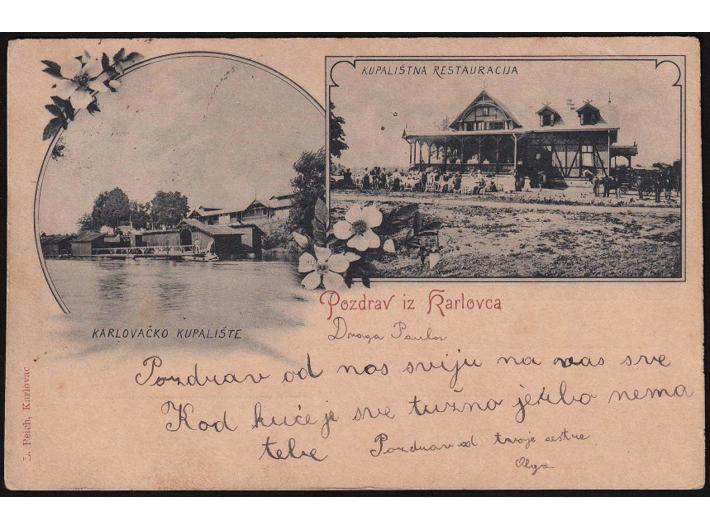 KUPALIŠTNA RESTAURACIJA
KARLOVAČKO KUPALIŠTE
Pozdrav iz Karlovca
Draga
Pozdrav od nas sviju na vas sve
Kod kuće je sve tužno jer nema
tebe Pozdrav od tvoje sestre
Olga
L. Reich, Karlovac